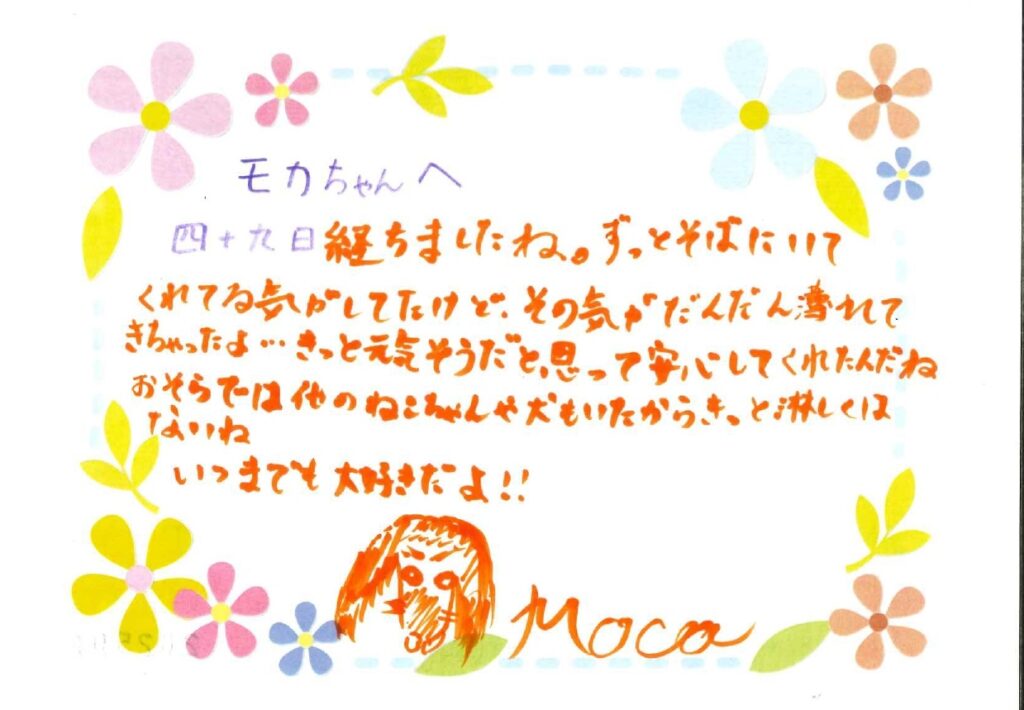 モカちゃんへ
四十九日経ちましたね。ずっとそばにいて
くれてる気がしてたけど、その気がだんだん薄れて
きちゃったよ…きっと元気そうだと、思って安心してくれたんだね
おそらでは他のねこちゃんや犬もいたからきっと淋しくは
ないね
いつまでも大好きだよ!!
Moca